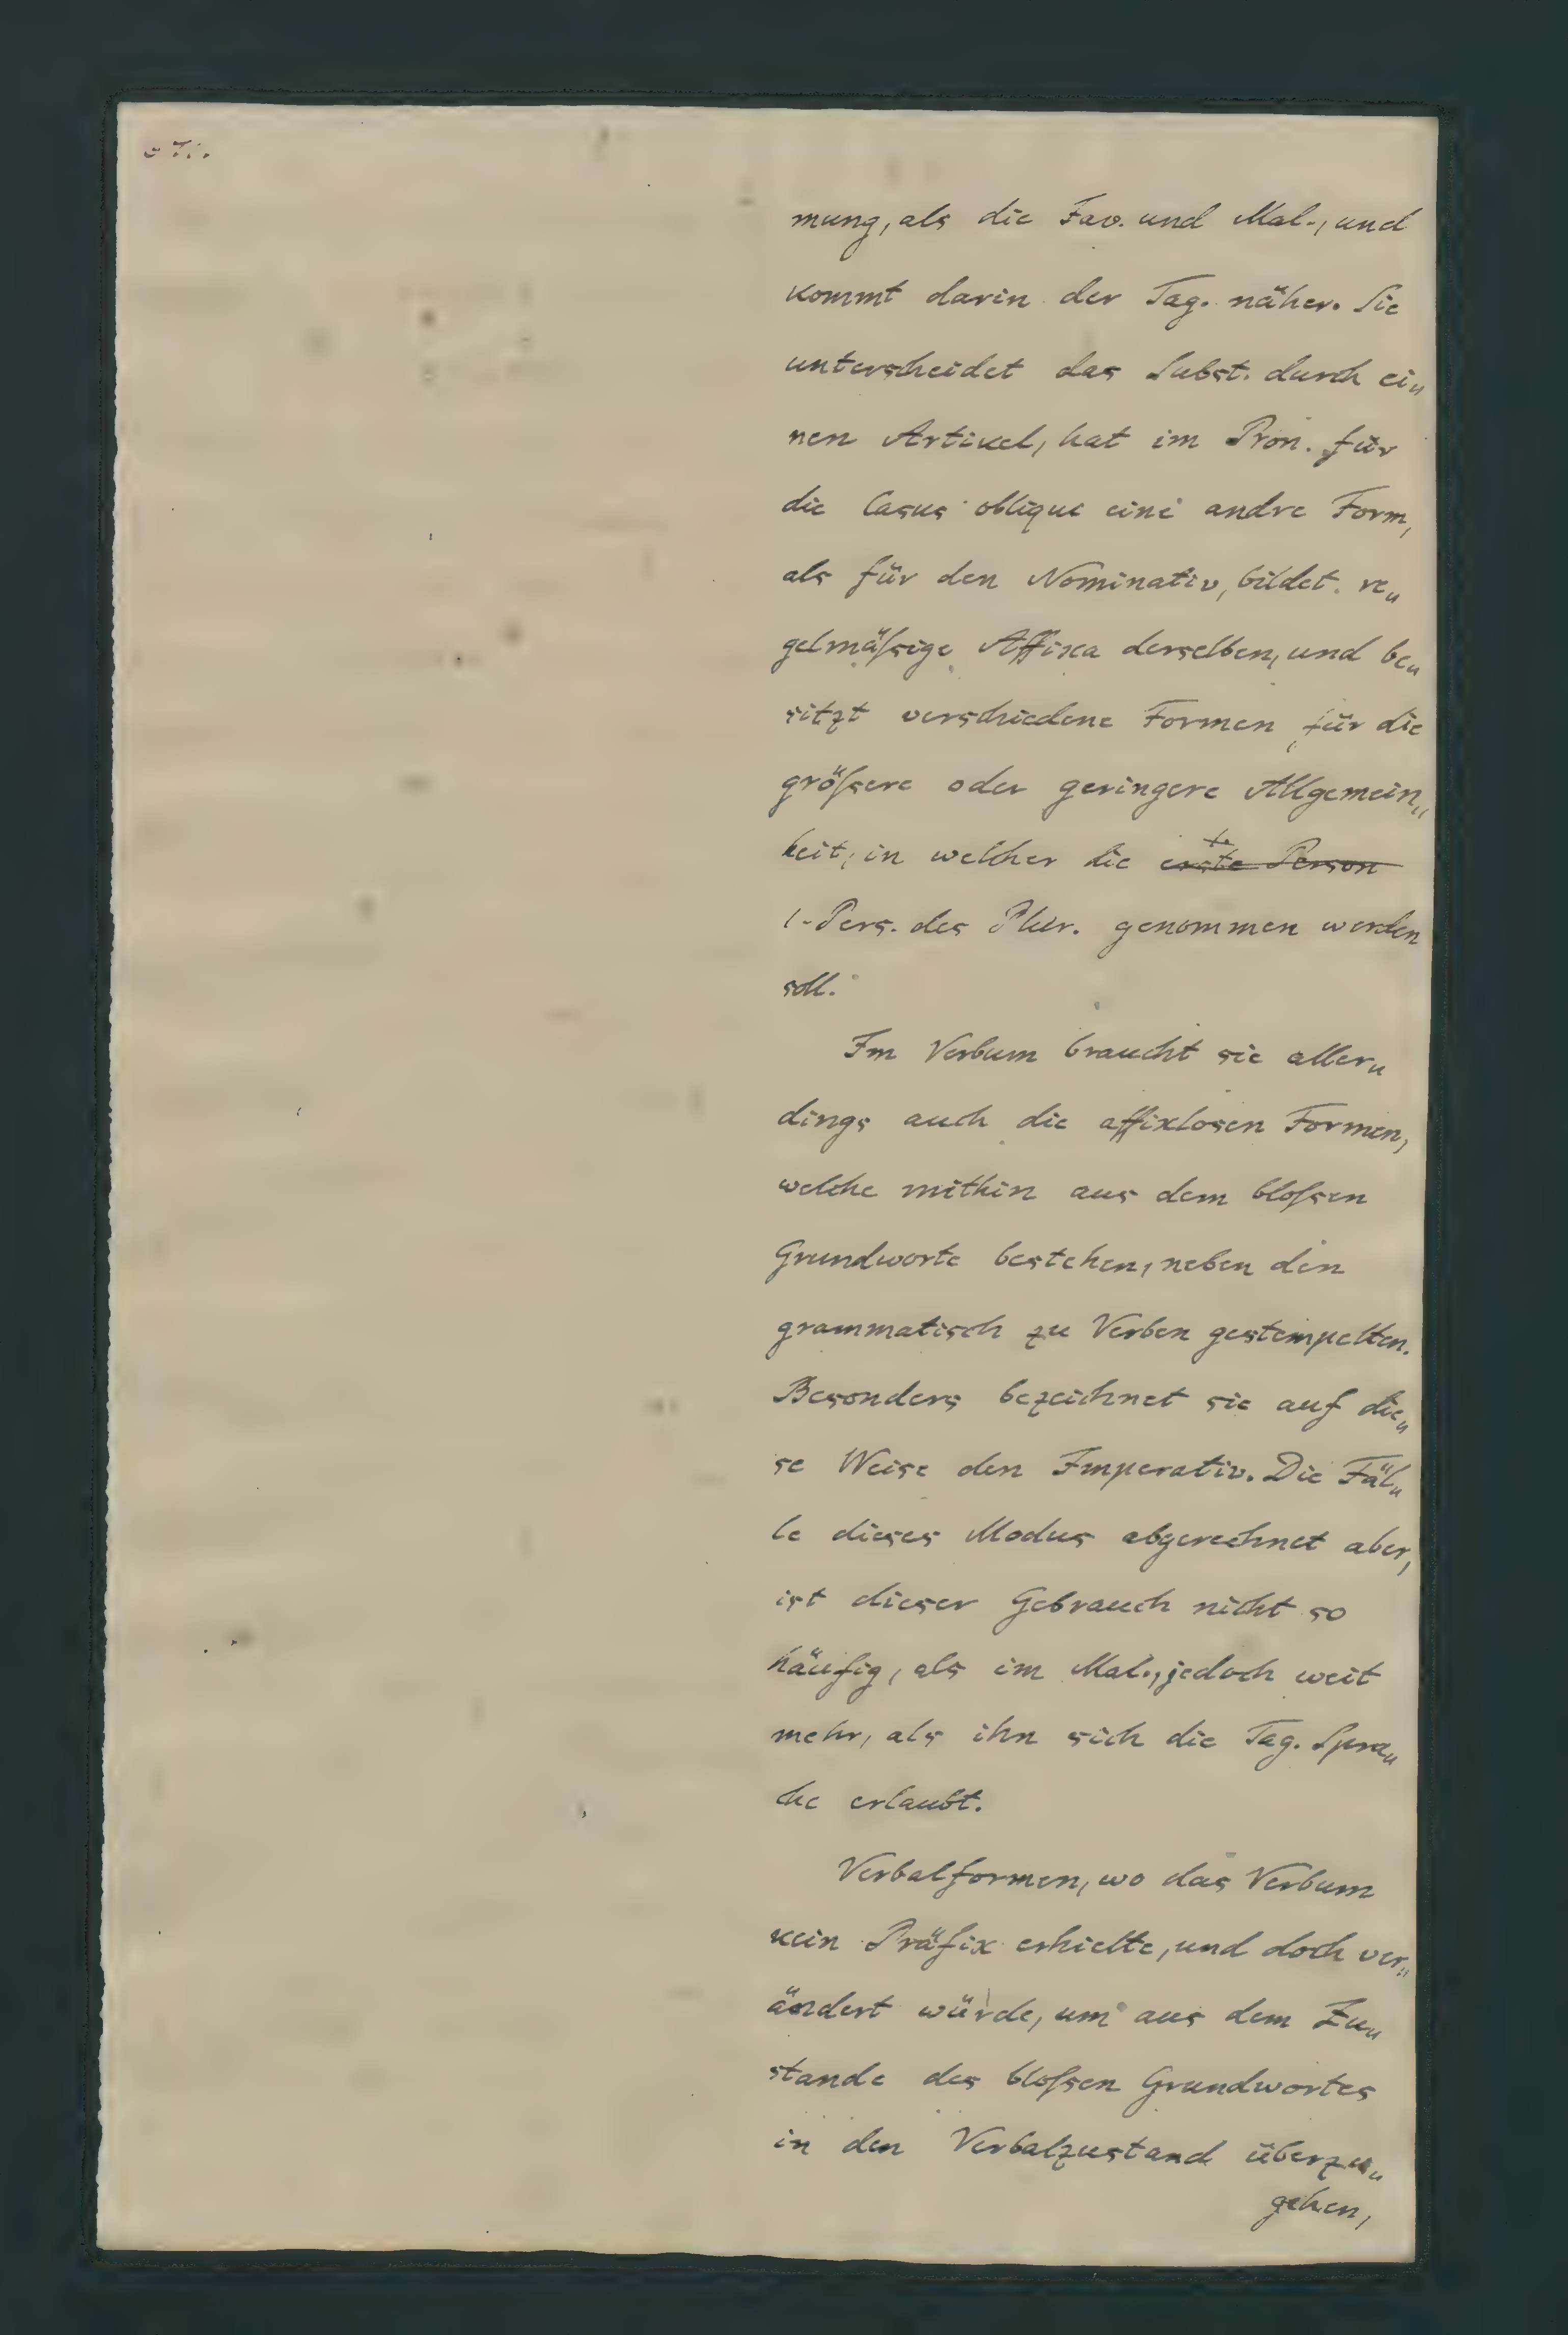 mung, als die Jav. und Mal., und
kommt darin der Tag. näher. Sie
unterscheidet das Subst. durch ei„
nen Artikel, hat im Pron. für
die Casus obliqui eine andre Form,
als für den Nominativ, bildet re„
gelmäſsige Affixa derselben, und be„
sitzt verschiedene Formen für die
gröſsere oder geringere Allgemein„
heit, in welcher die erste Person
1. Pers. des Plur. genommen werden
soll.
Im Verbum braucht sie aller„
dings auch die affixlosen Formen,
welche mithin aus dem bloſsen
Grundworte bestehen, neben den
grammatisch zu Verben gestempelten.
Besonders bezeichnet sie auf die„
se Weise den Imperativ. Die Fäl„
le dieses Modus abgerechnet aber,
ist dieser Gebrauch nicht so
häufig, als im Mal., jedoch weit
mehr, als ihn sich die Tag. Spra„
che erlaubt.
Verbalformen, wo das Verbum
kein Präfix erhielte, und doch ver„
ändert würde, um aus dem Zu„
stande des bloſsen Grundwortes
in den Verbalzustand überzu„
gehen,